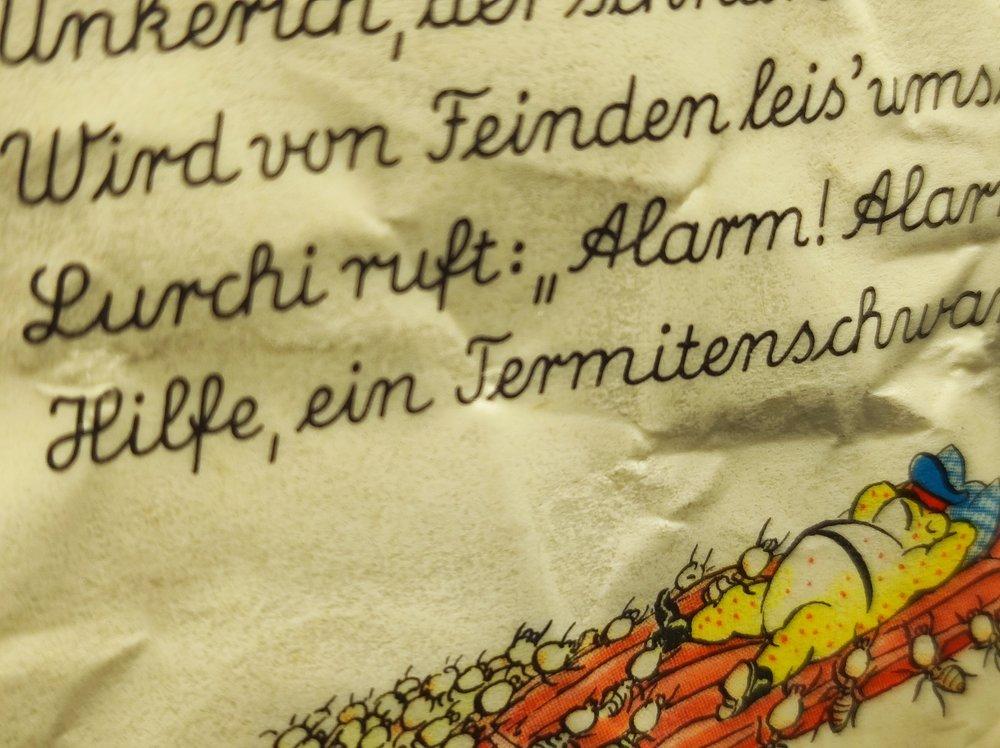 Unkerich, der
Wird von Feinden leis' ums
Lurchi ruft: „Alarm! Alar
Hilfe, ein Termitenschwa